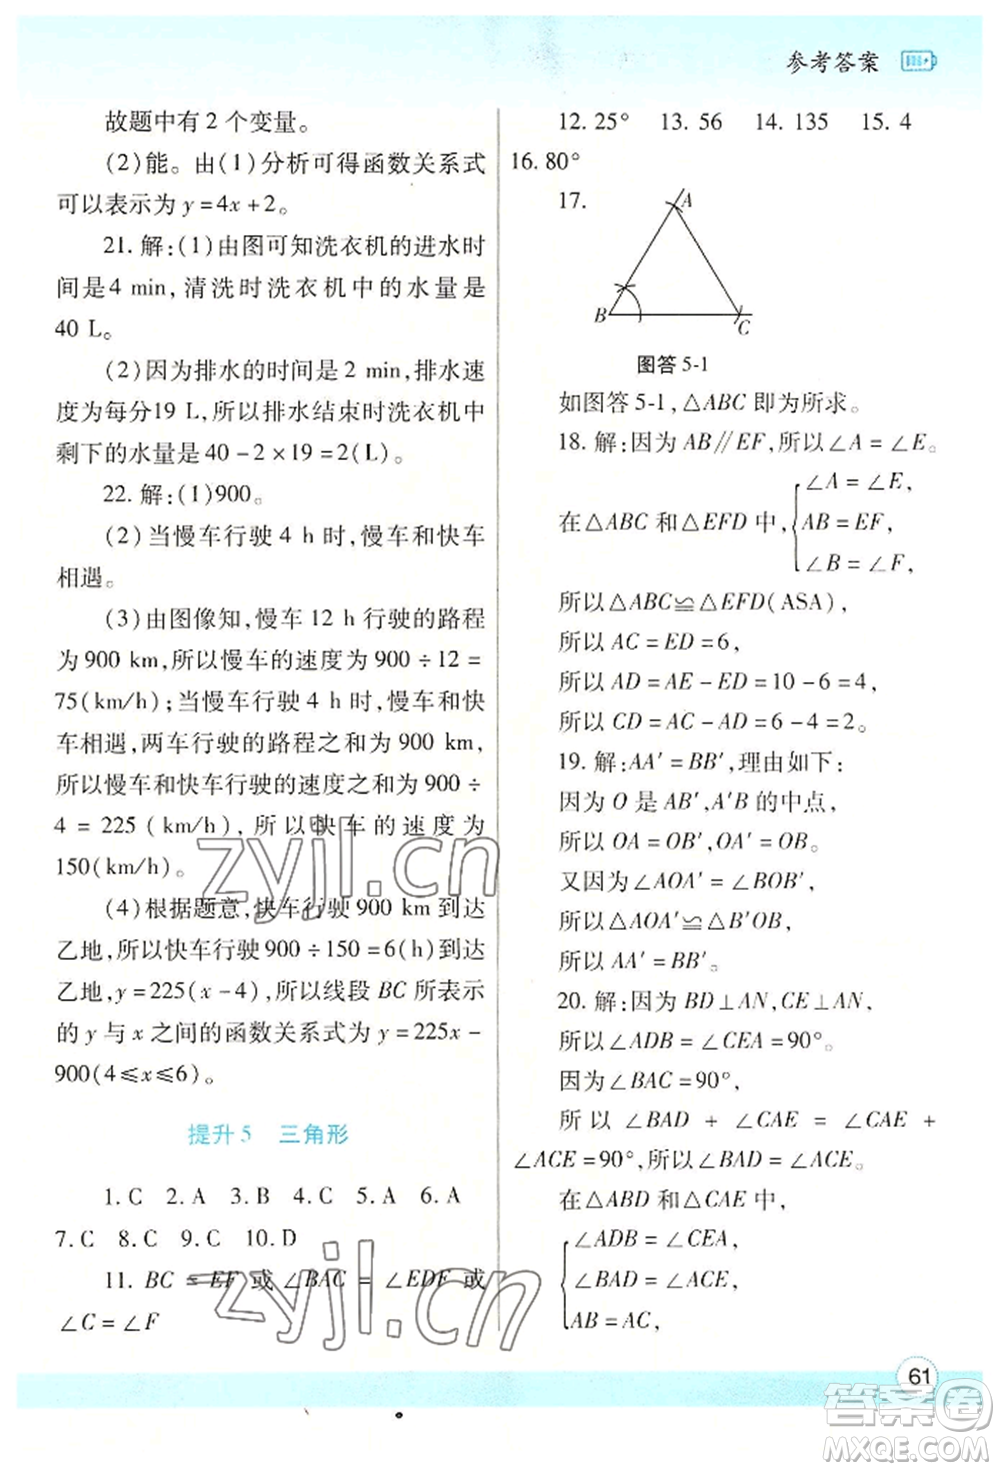 参考答案
故题中有2个变量。
(2)能。由(1)分析可得函数关系式
可以表示为y=4x+2。
21.解:(1)由图可知洗衣机的进水时
间是4 min,清洗时洗衣机中的水量是
40 L。
(2)因为排水的时间是2 min,排水速
度为每分19 L,所以排水结束时洗衣机中
剩下的水量是40-2×19=2(L)。
22.解:(1)900。
(2)当慢车行驶4 h时,慢车和快车
相遇。
(3)由图像知,慢车12 h行驶的路程
为900 km,所以慢车的速度为900÷12=
75(km/h);当慢车行驶4 h时,慢车和快
车相遇,两车行驶的路程之和为900 km,
所以慢车和快车行驶的速度之和为900÷
4=225(km/h),所以快车的速度为
150(km/h)。
(4)根据题意,快车行驶900 km到达
乙地,所以快车行驶900÷150=6(h)到达
乙地,y=225(x-4),所以线段BC所表示
的y与x之间的函数关系式为y=225x-
900(4≤x≤6)。
提升5 三角形
1.C 2.A 3.B 4.C 5.A 6.A
7.C 8.C 9.C 10.D
11.BC=EF或∠BAC=∠EDF或
∠C=∠F
12.25° 13.56 14.135 15.4
16.80°
17.
A
B
C
图答5-1
如图答5-1,△ABC即为所求。
18.解:因为AB∥EF,所以∠A=∠E。
在△ABC和△EFD中,
∠A=∠E,
AB=EF,
∠B=∠F,
所以△ABC≌△EFD(ASA),
所以AC=ED=6,
所以AD=AE-ED=10-6=4,
所以CD=AC-AD=6-4=2。
19.解:AA′=BB′,理由如下:
因为O是AB′,A′B的中点,
所以OA=OB′,OA′=OB。
又因为∠AOA′=∠BOB′,
所以△AOA′≌△B′OB,
所以AA′=BB′。
20.解:因为BD⊥AN,CE⊥AN,
所以∠ADB=∠CEA=90°。
因为∠BAC=90°,
所以∠BAD+∠CAE=∠CAE+
∠ACE=90°,所以∠BAD=∠ACE。
在△ABD和△CAE中,
∠ADB=∠CEA,
∠BAD=∠ACE,
AB=AC,
61
zyjl.cn
zyjl.cn
答案圈
MXQE.COM